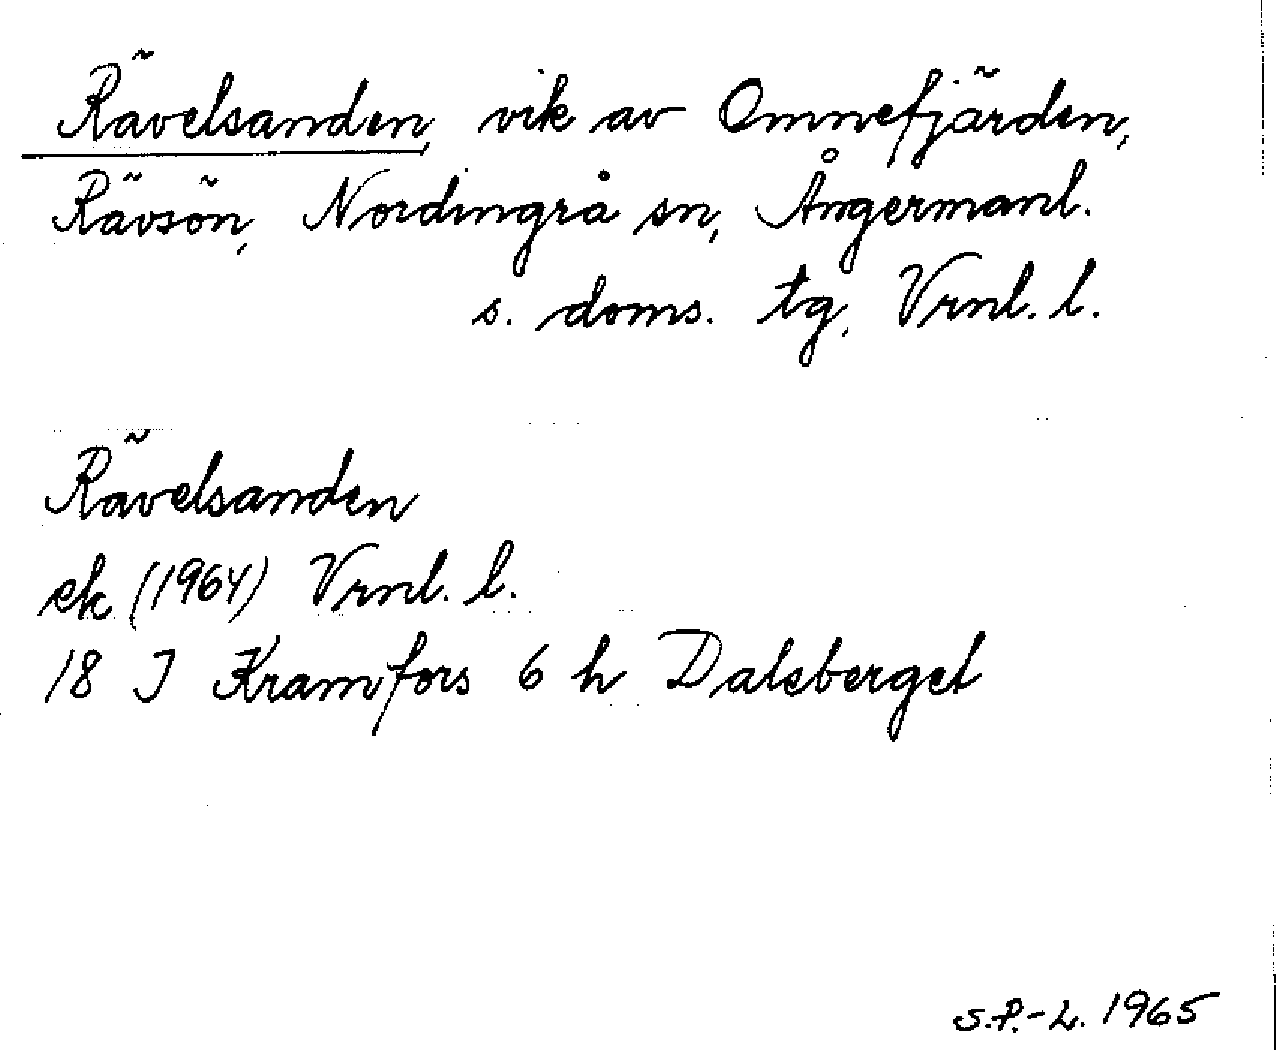 Rävelsanden, vik av Omnefjärden,
Rävsön, Nordingrå sn, Ångermanl.
s. doms. tg, Vrnl. l.
Rävelsanden
ek (1964) Vrnl. l.
18 J Kramfors 6 h Dalsberget
S.P.-L. 1965